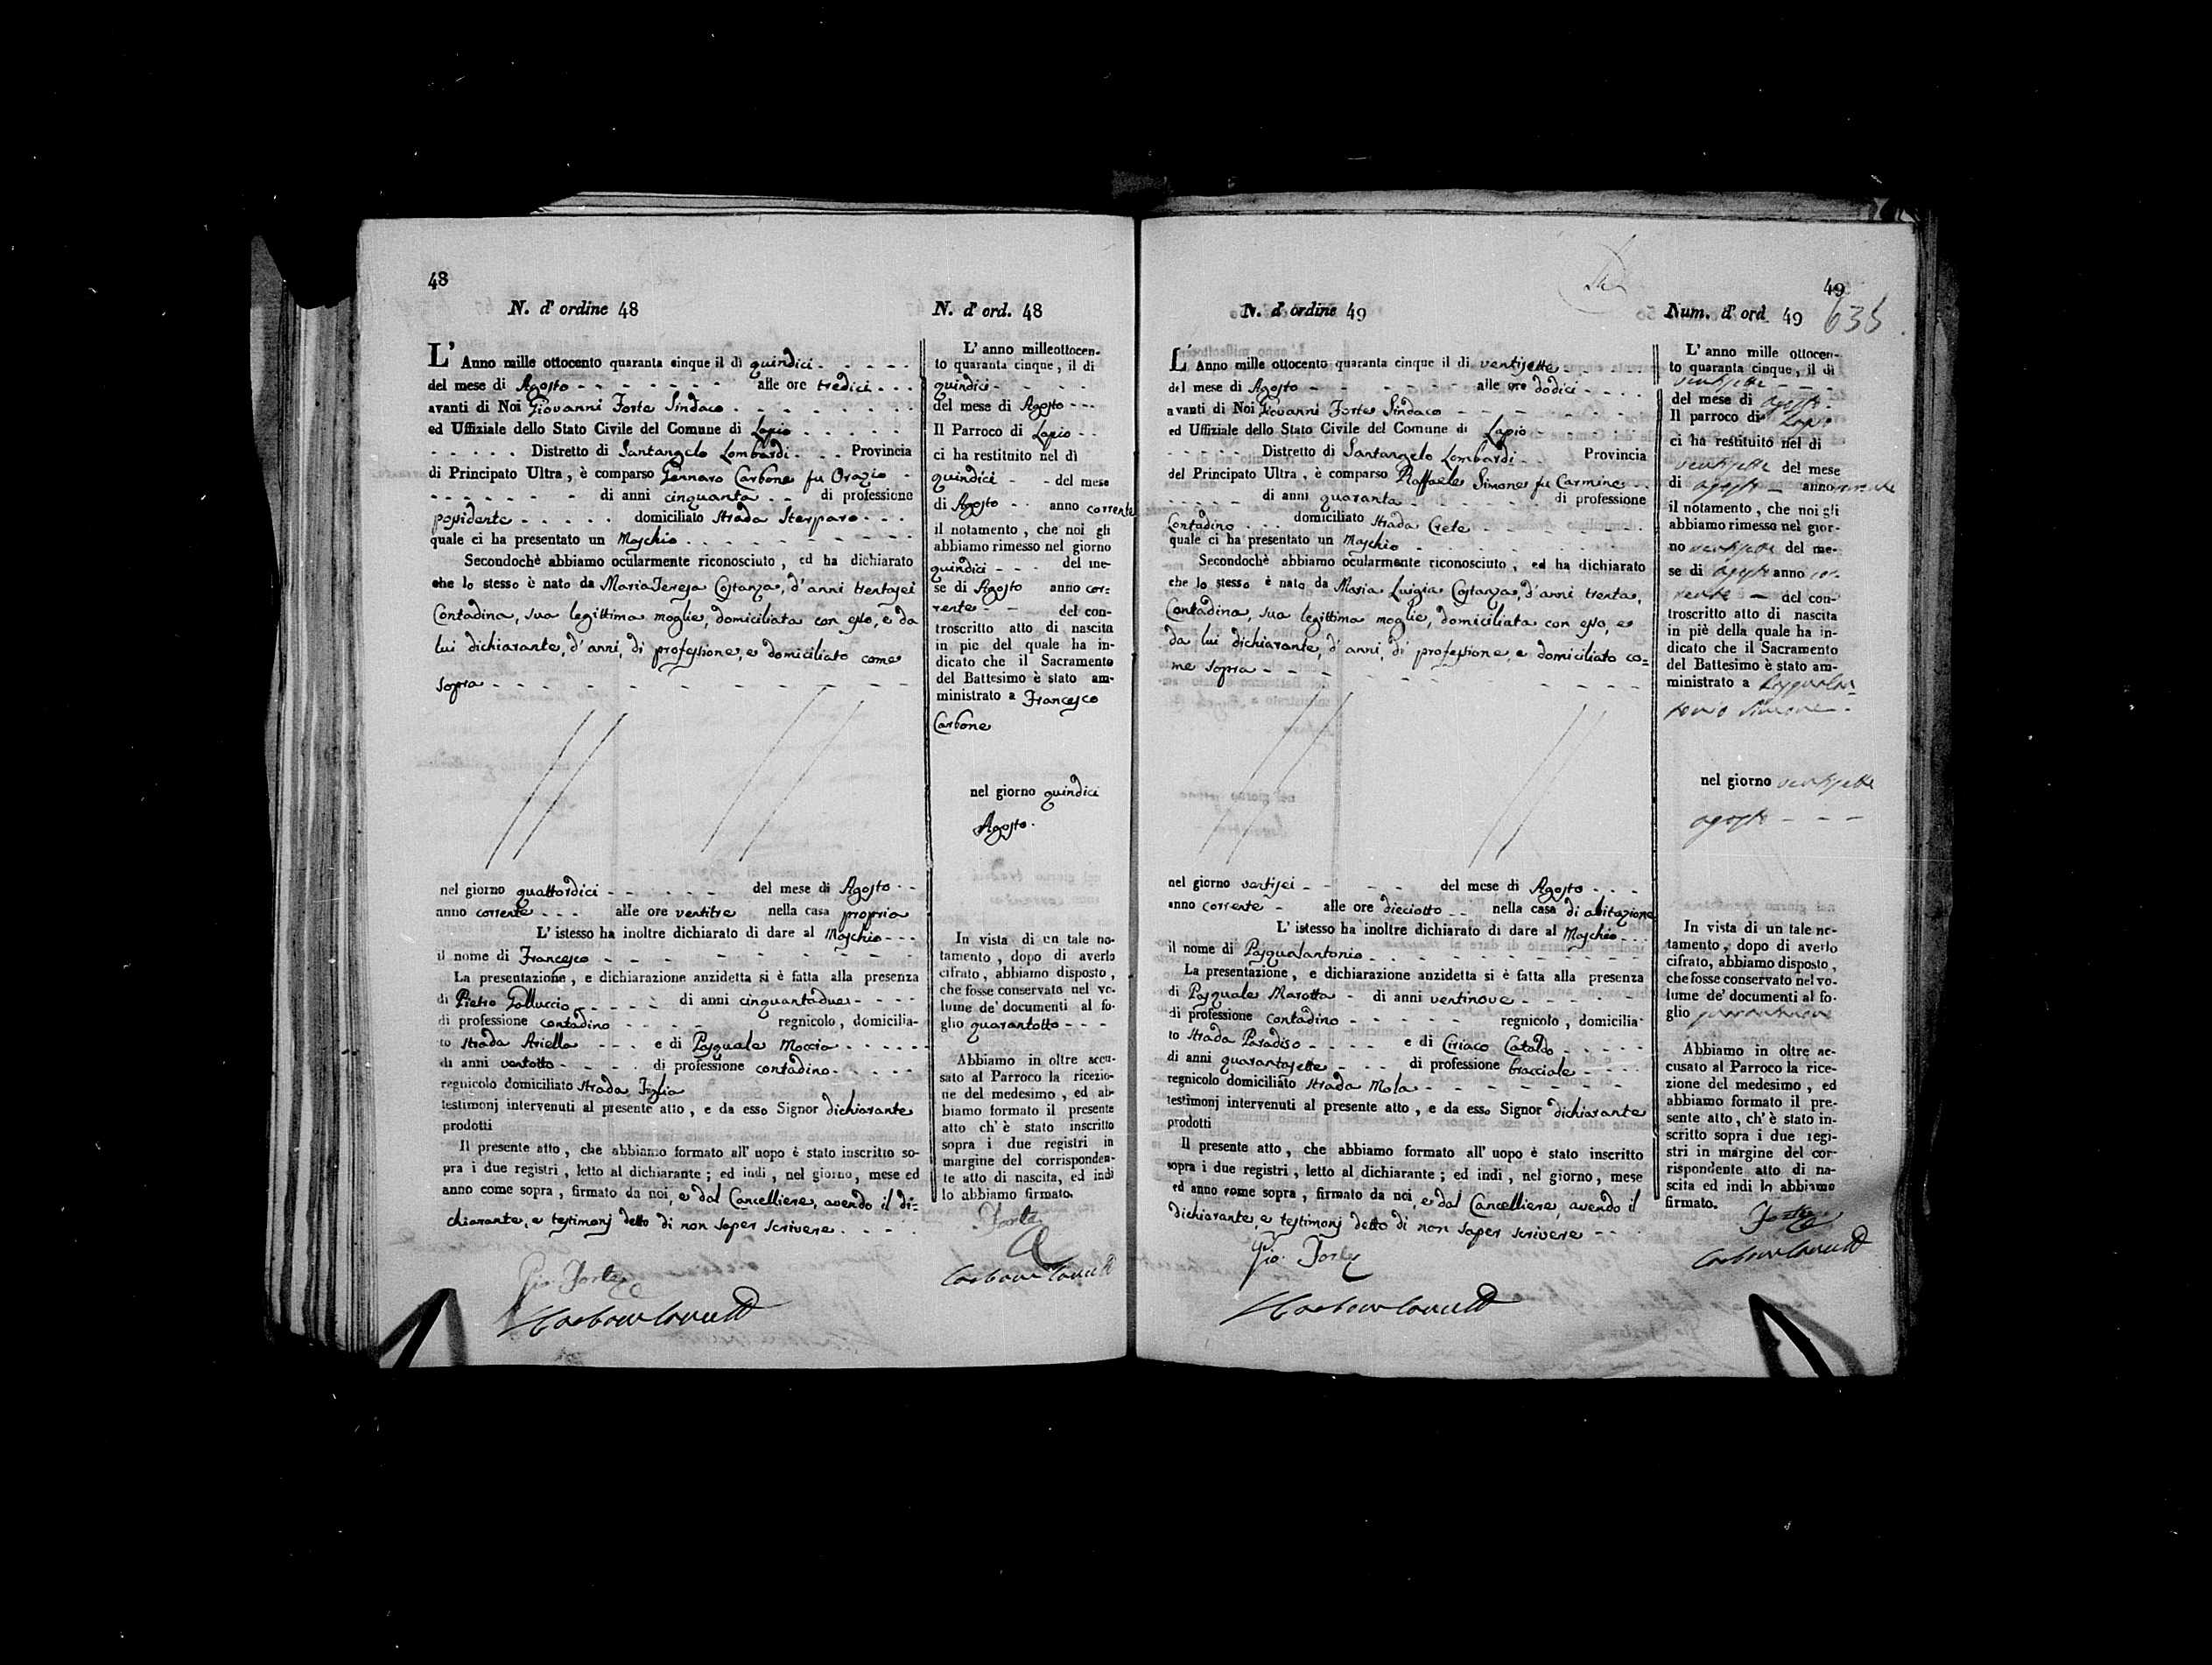 48
N. d' ordine 48
L' Anno mille ottocento quaranta cinque il dì quindici
del mese di Agosto alle ore tredici
avanti di Noi Giovanni Forte Sindaco
ed Uffiziale dello Stato Civile del Comune di Lapio
Distretto di Santangelo Lombardi Provincia
di Principato Ultra, è comparso Gennaro Carbone fu Orazio
di anni cinquanta di professione
possidente domiciliato Strada Sterparo
quale ci ha presentato un Maschio
Secondochè abbiamo ocularmente riconosciuto, ed ha dichiarato
che lo stesso è nato da Maria Teresa Costanza, d'anni trentasei
Contadina, sua legittima moglie, domiciliata con esso, e da
lui dichiarante, d'anni, di professione, e domiciliato come
sopra
nel giorno quattordici del mese di Agosto
anno corrente alle ore ventitre nella casa propria
L' istesso ha inoltre dichiarato di dare al Maschio
il nome di Francesco
La presentazione, e dichiarazione anzidetta si è fatta alla presenza
di Pietro Galluccio di anni cinquantadue
di professione contadino regnicolo, domicilia-
to Strada Ariella e di Pasquale Moccia
di anni ventotto di professione contadino
regnicolo domiciliato Strada Figlia
testimonj intervenuti al presente atto, e da esso Signor dichiarante
prodotti
Il presente atto, che abbiamo formato all' uopo è stato inscritto so-
pra i due registri, letto al dichiarante; ed indi, nel giorno, mese ed
anno come sopra, firmato da noi, e dal Cancelliere, avendo il di=
chiarante, e testimonj detto di non saper scrivere
Gio: Forte
N. d' ord. 48
L' anno milleottocen-
to quaranta cinque, il di
quindici
del mese di Agosto
Il Parroco di Lapio
ci ha restituito nel dì
quindici del mese
di Agosto anno corrente
il notamento, che noi gli
abbiamo rimesso nel giorno
quindici del me-
se di Agosto anno cor-
rente del con-
troscritto atto di nascita
in piè del quale ha in-
dicato che il Sacramento
del Battesimo è stato am-
ministrato a Francesco
Carbone
nel giorno quindici
Agosto.
In vista di un tale no-
tamento, dopo di averlo
cifrato, abbiamo disposto,
che fosse conservato nel vo-
lume de' documenti al fo-
glio quarantotto
Abbiamo in oltre accu-
sato al Parroco la ricezio-
ne del medesimo, ed ab-
biamo formato il presente
atto ch' è stato inscritto
sopra i due registri in
margine del corrisponden-
te atto di nascita, ed indi
lo abbiamo firmato.
Forte
49
N. d' ordine 49
L' Anno mille ottocento quaranta cinque il di ventisette
del mese di Agosto alle ore dodici
avanti di Noi Giovanni Forte Sindaco
ed Uffiziale dello Stato Civile del Comune di Lapio
Distretto di Santangelo Lombardi Provincia
del Principato Ultra, è comparso Raffaele Simone fu Carmine
di anni quaranta di professione
Contadino domiciliato Strada Crete
quale ci ha presentato un Maschio
Secondochè abbiamo ocularmente riconosciuto, ed ha dichiarato
che lo stesso è nato da Maria Luigia Costanza, d'anni trenta,
Contadina, sua legittima moglie, domiciliata con esso, e
da lui dichiarante, d'anni, di professione, e domiciliato co=
me sopra
nel giorno ventisei del mese di Agosto
anno corrente alle ore dieciotto nella casa di abitazione
L' istesso ha inoltre dichiarato di dare al Maschio
il nome di Pasqualantonio
La presentazione, e dichiarazione anzidetta si è fatta alla presenza
di Pasquale Marotta di anni ventinove
di professione contadino regnicolo, domicilia-
to Strada Paradiso e di Ciriaco Cataldo
di anni quarantasette di professione bracciale
regnicolo domiciliato Strada Mola
testimonj intervenuti al presente atto, e da esso Signor dichiarante
prodotti
Il presente atto, che abbiamo formato all' uopo è stato inscritto
sopra i due registri, letto al dichiarante; ed indi, nel giorno, mese
ed anno come sopra, firmato da noi, e dal Cancelliere, avendo il
dichiarante, e testimonj detto di non saper scrivere
Gio: Forte
Num. d' ord 49
635
L' anno mille ottocen-
to quaranta cinque, il di
ventisette
del mese di agosto
Il parroco di Lapio
ci ha restituito nel di
ventisette del mese
di agosto anno corrente
il notamento, che noi gli
abbiamo rimesso nel gior-
no ventisette del me-
se di agosto anno cor-
rente del con-
troscritto atto di nascita
in piè della quale ha in-
dicato che il Sacramento
del Battesimo è stato am-
ministrato a Pasqualan-
tonio Simone
nel giorno ventisette
agosto
In vista di un tale no-
tamento, dopo di averlo
cifrato, abbiamo disposto,
che fosse conservato nel vo-
lume de' documenti al fo-
glio quarantanove
Abbiamo in oltre ac-
cusato al Parroco la rice-
zione del medesimo, ed
abbiamo formato il pre-
sente atto, ch' è stato in-
scritto sopra i due regi-
stri in margine del cor-
rispondente atto di na-
scita ed indi lo abbiamo
firmato.
Forte